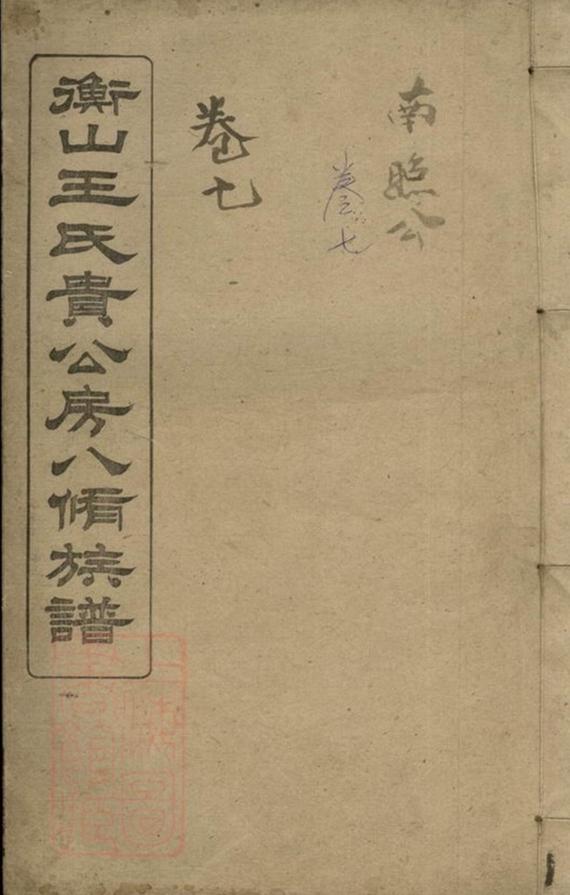 南照公
卷七
卷七
衡山王氏貴公房八脩族譜